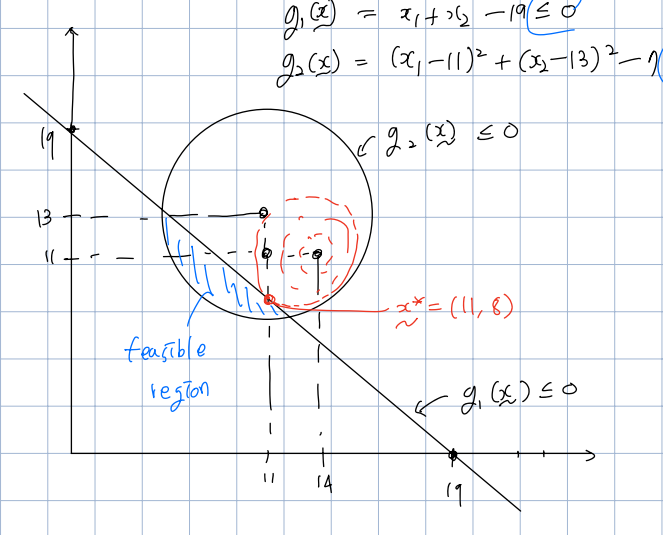 g₁(x) = x₁ + x₂ - 19 ≤ 0
g₂(x) = (x₁-11)² + (x₂-13)² -
19
g₂(x) ≤ 0
13
11
x* = (11, 8)
feasible
region
g₁(x) ≤ 0
11
14
19